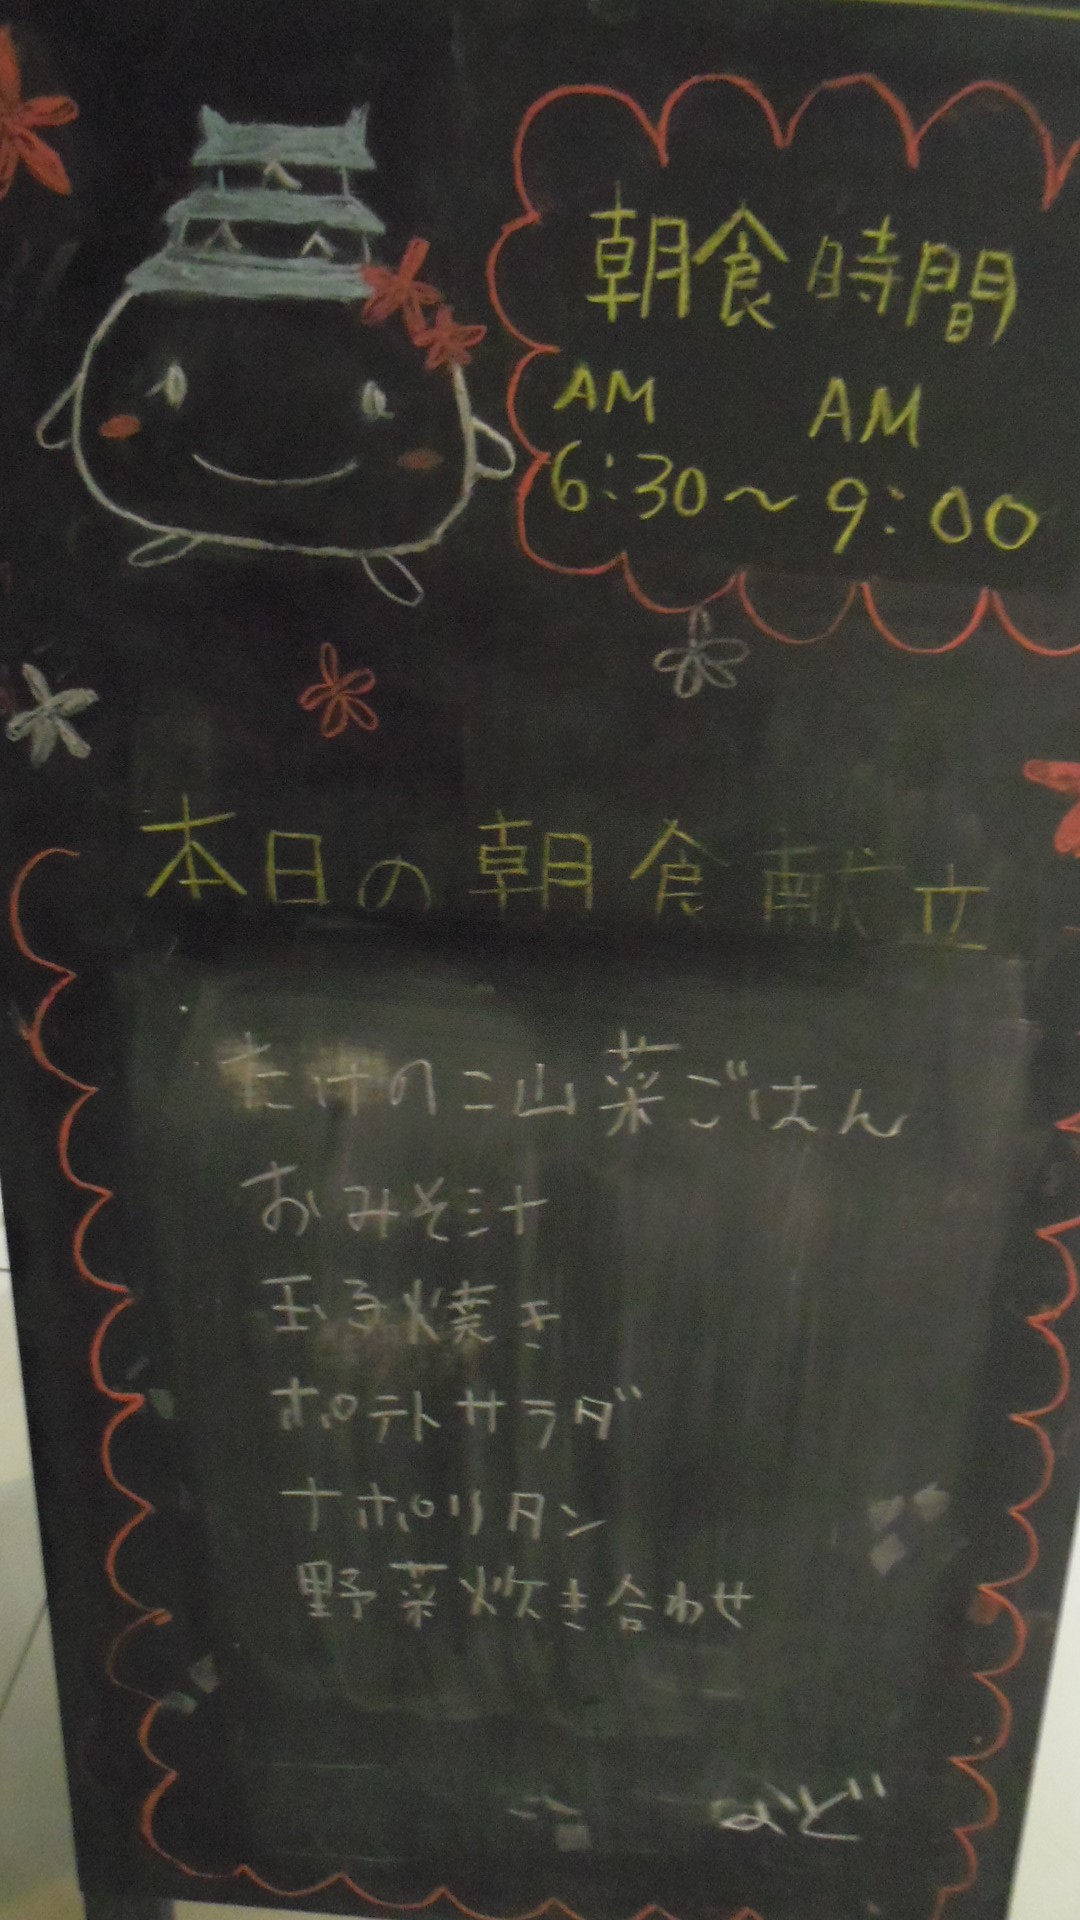 朝食時間
AM AM
6:30~9:00
本日の朝食献立
たけのこ山菜ごはん
おみそ汁
玉子焼き
ポテトサラダ
ナポリタン
野菜炊き合わせ
など